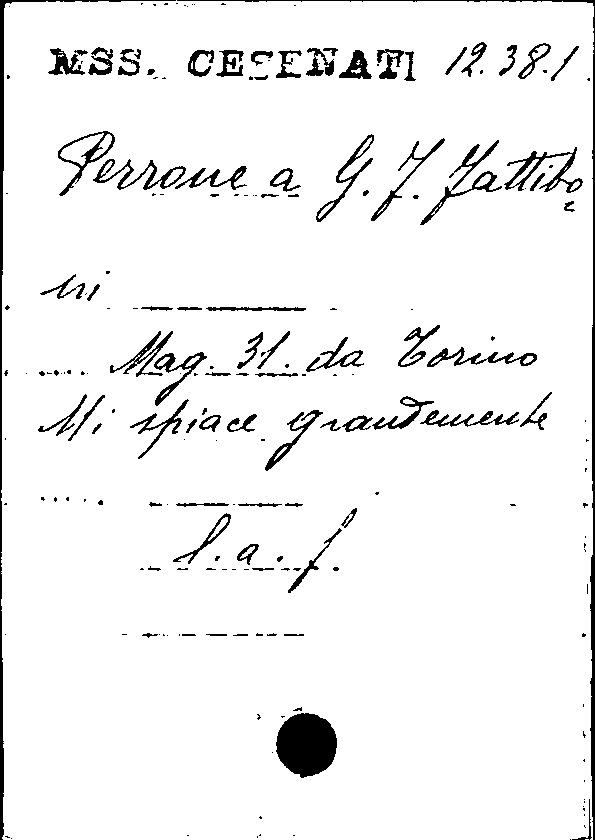 MSS. CESENATI 12.38.1
Perrone a G. F. Fattibo=
ni
.... Mag. 31. da Torino
Mi spiace grandemente
.....
l. a. f.